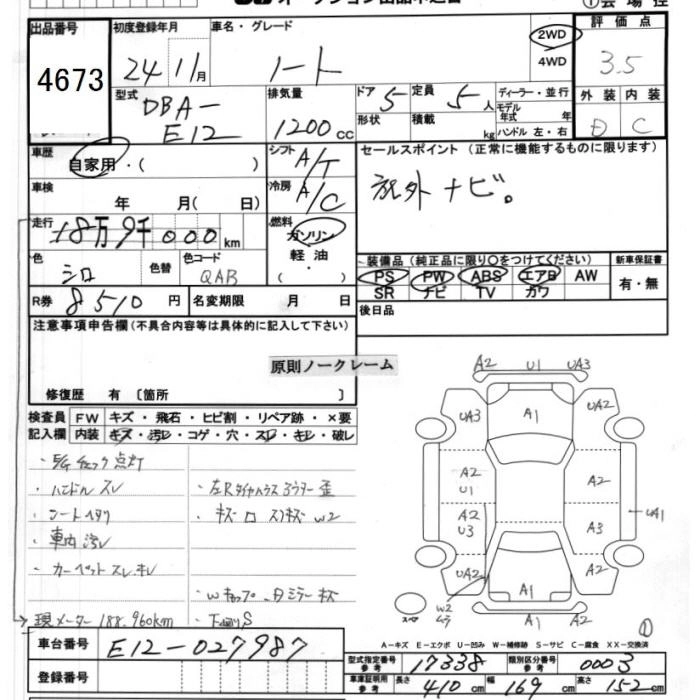 出品番号
4673
初度登録年月
24 11月
車名・グレード
ノート
2WD
4WD
①会場控
評価点
3.5
型式
DBA-
E12
排気量
1200cc
ドア 5
定員 5人
形状
積載 kg
ディーラー・並行
モデル年式 年
ハンドル 左・右
外装 内装
D C
車歴
自家用・( )
シフト A/T
セールスポイント (正常に機能するものに限ります)
社外 ナビ。
車検
年 月( 日)
冷房 A/C
走行
18万9千000km
燃料
ガソリン
軽油
( )
色
シロ
色替
色コード
QAB
装備品 (純正品に限り○をつけてください)
PS PW ABS エアB AW
SR ナビ TV カワ
新車保証書
有・無
R券 8510円
名変期限 月 日
後日品
注意事項申告欄(不具合内容等は具体的に記入して下さい)
原則ノークレーム
修復歴 有 〔箇所 〕
検査員
記入欄
FW キズ・飛石・ヒビ割・リペア跡・×要
内装 キズ・汚レ・コゲ・穴・スレ・キレ・破レ
・E/Gチェック点灯
・ハンドルスレ
・シートヘタリ
・車内汚レ
・カーペットスレ、キレ
現メーター188.960km
・キズ
W2
・下廻りS
A2 U1 UA3
UA3 A1 UA2
A2
U1
A2
A2
U3
A3
UA1
UA2 A1 A2
スペア
W2
A1 A2
A-キズ E-エクボ U-凹み W-補修跡 S-サビ C-腐食 XX-交換済
車台番号
E12-027987
登録番号
型式指定番号 参考 17338
類別区分番号 参考 0003
車庫証明用 参考
長さ 410cm
幅 169cm
高さ 152cm